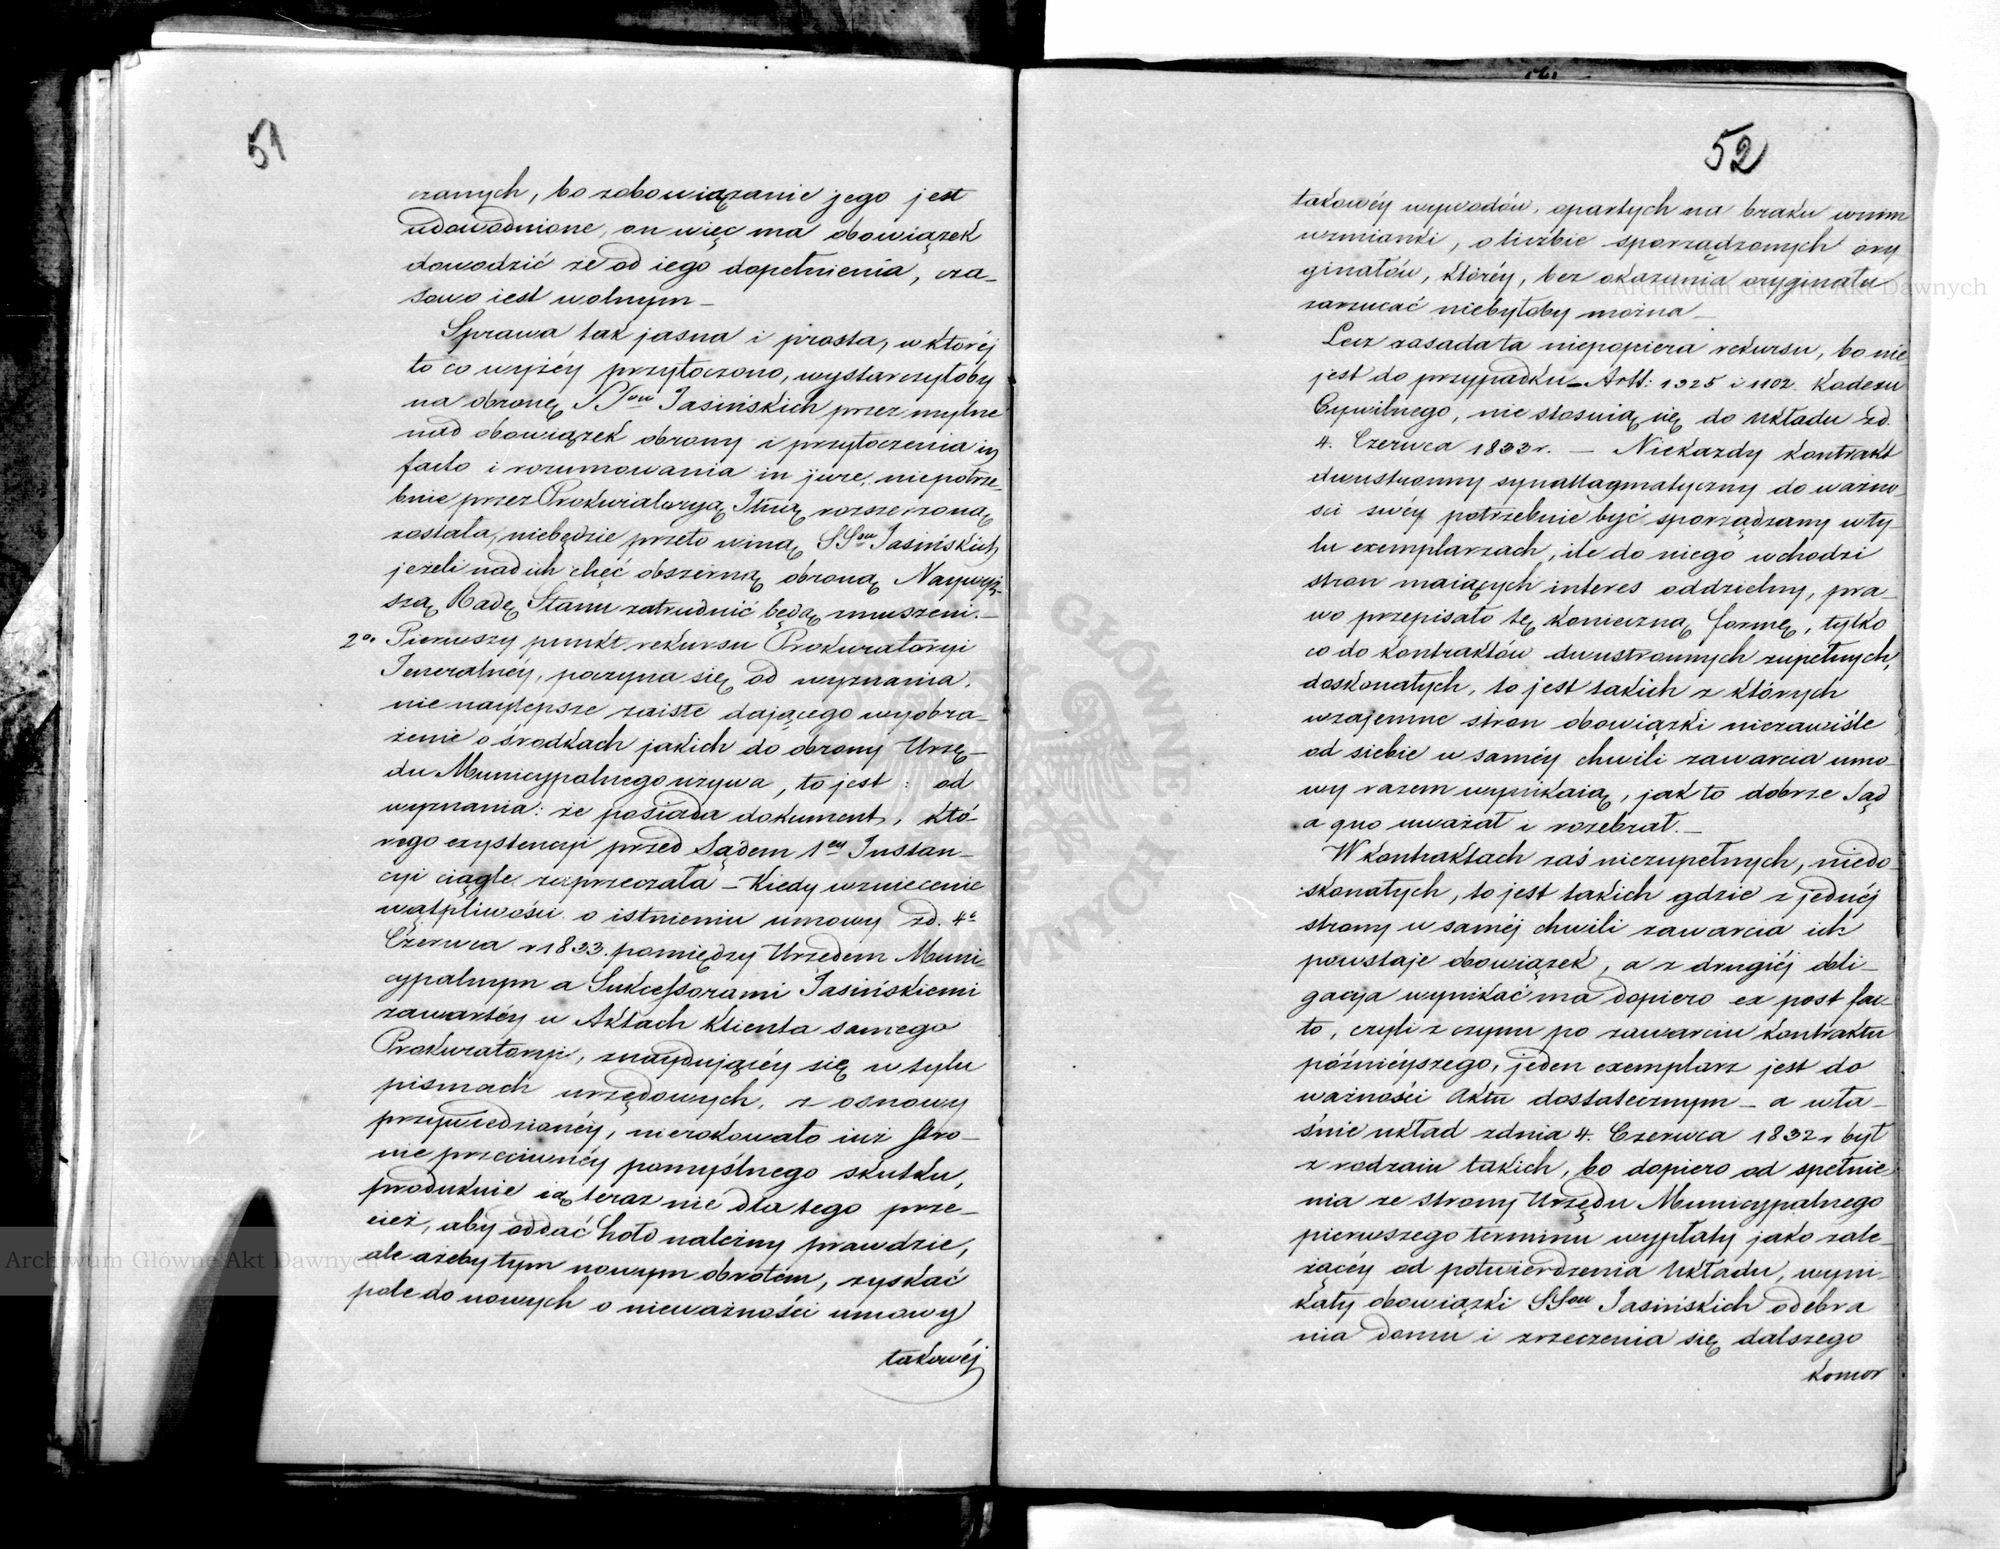 51
czonych, bo zobowiązanie jego jest
udowodnione, on więc ma obowiązek
dowodzić że od iego dopełnienia, cza-
sowo iest wolnym –
Sprawa tak jasna i prosta, w któréj
to co wyżéy przytoczono, wystarczyłoby
na obronę SSów Jasińskich przez mylne
nad obowiązek obrony i przytoczenia in
facto i rozumowania in jure, niepotrze-
bnie przez Prokuratoryą Jlną rozszerzoną
została, niebędzie przeto winą SSów Jasińskich
jeżeli nad ich chęć obszerną obroną Naywyż-
szą Radę Stanu zatrudnić będą zmuszeni. –
2o Pierwszy punkt rekursu Prokuratoryi
Jeneralnéy, poczyna się od wyznania,
nie naylepsze zaiste dającego wyobra-
żenie o środkach jakich do obrony Urzę-
du Municypalnego używa, to jest: od
wyznania: że posiada dokument, któ-
rego exystencyi przed Sądem 1ey Instan-
cyi ciągle zaprzeczała – Kiedy wzniecenie
wątpliwości o istnieniu umowy zd. 4o
Czerwca r 1833. pomiędzy Urzędem Muni
cypalnym a Sukcessorami Jasińskiemi
zawartéy w Aktach Klienta samego
Prokuratoryi, znaydującéy się w tylu
pismach urzędowych, z osnowy
przywiedzionéy, nierokowało iuż stro-
nie przeciwnéy pomyślnego skutku,
produkuie ią teraz nie dla tego prze-
cież, aby oddać hołd należny prawdzie,
ale ażeby tym nowym obrotem, zyskać
pole do nowych o nieważności umowy
takowéj
52
takowéy wywodów, opartych na braku wnim
wzmianki, o liczbie sporządzonych ory
ginałów, któréy, bez okazania oryginału
zarzucać niebyłoby można –
Lecz zasada ta niepopiera rekursu, bo nie
jest do przypadku – Artt: 1325 i 1102. Kodexu
Cywilnego, nie stosuią się do układu zd.
4. Czerwca 1833 r. – Niekażdy kontrakt
dwustronny synallagmatyczny do ważno-
ści swéy potrzebuie być sporządzany w ty-
lu exemplarzach, ile do niego wchodzi
stron maiących interes oddzielny, pra-
wo przepisało tę konieczną formę, tylko
co do kontraktów dwustronnych zupełnych,
doskonałych, to jest takich z których
wzajemne stron obowiązki niezawiśle
od siebie w saméy chwili zawarcia umo-
wy razem wynikaią, jak to dobrze Sąd
a quo uważał i rozebrał. –
W kontraktach zaś niezupełnych, niedo
skonałych, to jest takich gdzie z jednéj
strony w saméj chwili zawarcia ich
powstaje obowiązek, a z drugiéj obli-
gacya wynikać ma dopiero ex post fac-
to, czyli z czynu po zawarciu kontraktu
późnieyszego, jeden exemplarz jest do
ważności aktu dostatecznym – a wła-
śnie układ zdnia 4. Czerwca 1832 r był
z rodzaiu takich, bo dopiero od spełnie
nia ze strony Urzędu Municypalnego
pierwszego terminu wypłaty jako zale-
żącéy od potwierdzenia układu, wyni-
kały obowiązki SSów Jasińskich odebra
nia domu i zrzeczenia się dalszego
komor